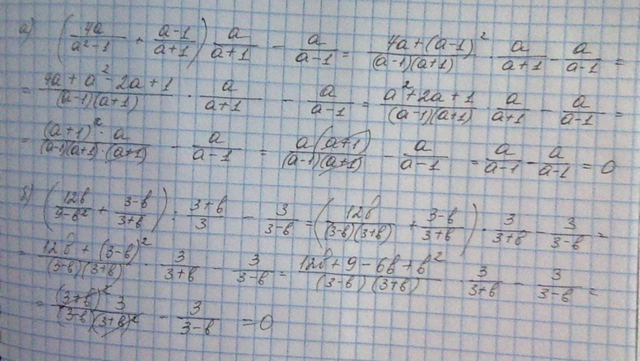 а) (4a/(a²-1) + (a-1)/(a+1)) a/(a+1) - a/(a-1) = (4a+(a-1)²)/((a-1)(a+1)) · a/(a+1) - a/(a-1) =
= (4a+a²-2a+1)/((a-1)(a+1)) · a/(a+1) - a/(a-1) = (a²+2a+1)/((a-1)(a+1)) · a/(a+1) - a/(a-1) =
= ((a+1)²·a)/((a-1)(a+1)·(a+1)) - a/(a-1) = (a(a+1))/((a-1)(a+1)) - a/(a-1) = a/(a-1) - a/(a-1) = 0
б) (12b/(9-b²) + (3-b)/(3+b)) : (3+b)/3 - 3/(3-b) = (12b/((3-b)(3+b)) + (3-b)/(3+b)) · 3/(3+b) - 3/(3-b) =
= (12b+(3-b)²)/((3-b)(3+b)) · 3/(3+b) - 3/(3-b) = (12b+9-6b+b²)/((3-b)(3+b)) · 3/(3+b) - 3/(3-b) =
= ((3+b)² 3)/((3-b)(3+b)²) - 3/(3-b) = 0